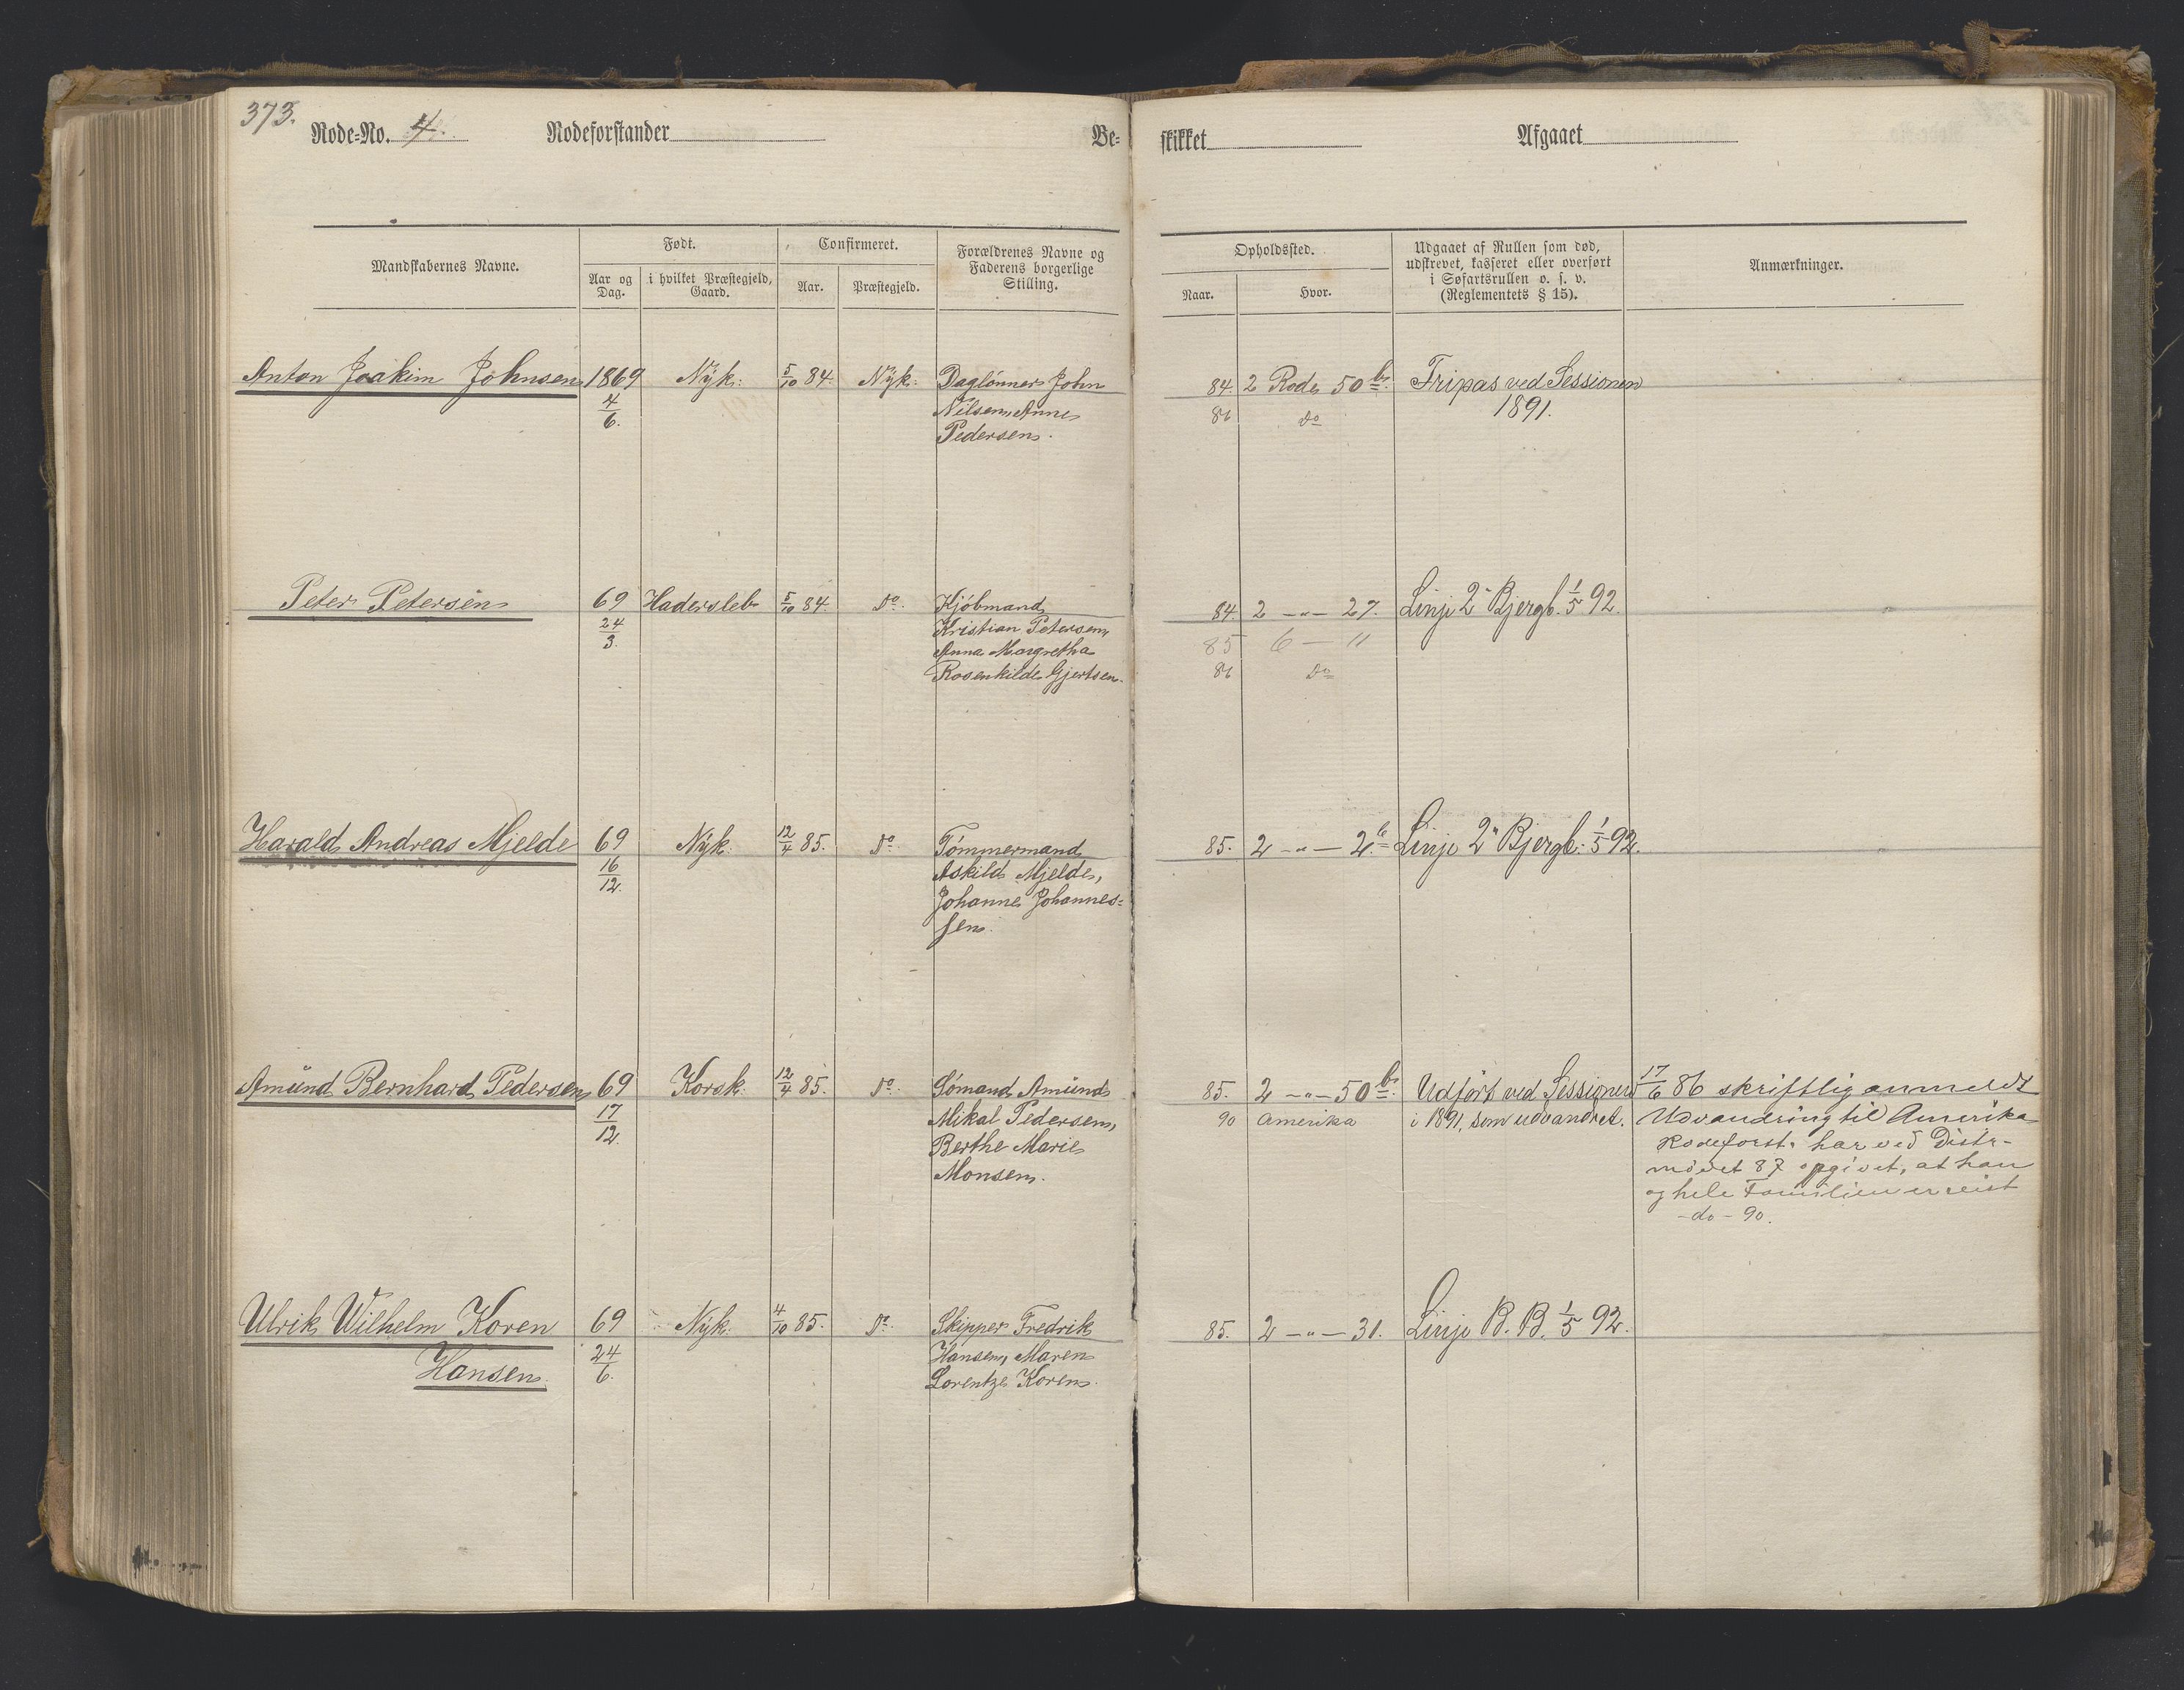 373.
Rode=No. 4. Rodeforstander Be=
skikket Afgaaet
Mandskabernes Navne.
Født.
Aar og Dag.
i hvilket Præstegjeld, Gaard.
Confirmeret.
Aar.
Præstegjeld.
Forældrenes Navne og
Faderens borgerlige
Stilling.
Opholdssted.
Naar.
Hvor.
Udgaaet af Rullen som død,
udskrevet, kasseret eller overført
i Søfartsrullen o. s. v.
(Reglementets § 15).
Anmærkninger.
Anton Joakim Johnsen 1869 Nÿk: 5/10 84. Nÿk: Daglönner John 84. 2 Rode 50 b. Fripas ved Sessionen
4/6. Nilsen, Anne 86 do 1891.
Pedersen.
Peter Petersen 69 Hadersleb 5/10 84. do. Kjöbmand 84. 2 -"- 27. Linje 2" Bjergb. 1/5 92.
24/3. Kristian Petersen, 85 6 - 11
Anna Margretha 86 do
Rosenkilde Gjertsen.
Harald Andreas Mjelde 69 Nÿk. 12/4 85. do. Tömmermand 85. 2 -"- 2 b. Linje 2" Bjergb. 1/5 92.
16/12. Askild Mjelde,
Johanne Johannes=
sen.
Amünd Bernhard Pedersen 69 Korsk. 12/4 85. do. Sömand Amünd 85. 2 -"- 50 b. Udført ved Sessionen 17/6 86 skriftlig anmeldt
17/12. Mikal Pedersen, 90 Amerika i 1891, som udvandret. Udvandring til Amerika
Berthe Marie Rodeforst. har ved Distr-
Monsen. mödet 87 opgivet, at han
og hele Familien er reist
-do- 90.
Ulrik Wilhelm Koren 69 Nÿk. 4/10 85. do. Skipper Fredrik 85. 2 -"- 31. Linje B. B. 1/5 92.
Hansen. 24/6. Hansen, Maren
Lorentze Koren.